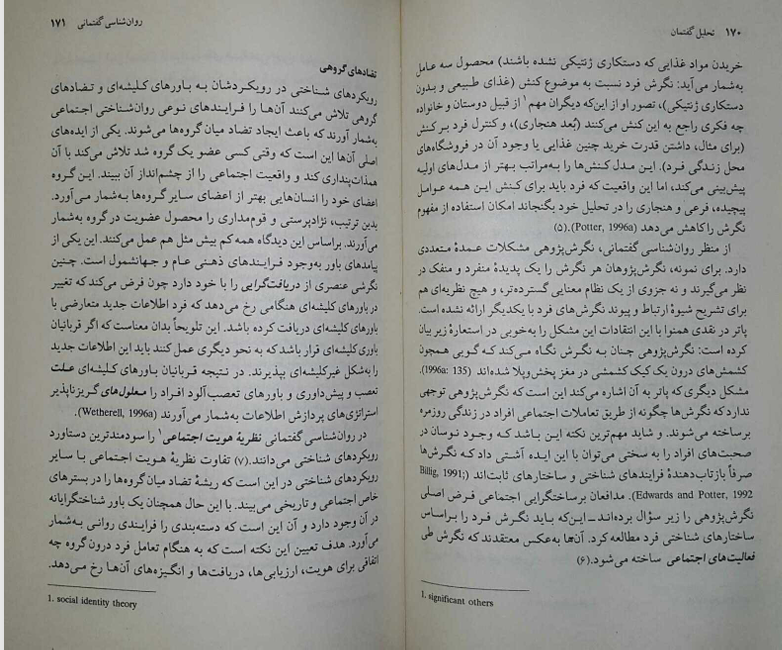 ۱۷۰ تحلیل گفتمان
خریدن مواد غذایی که دستکاری ژنتیکی نشده باشند) محصول سه عامل
به‌شمار می‌آید: نگرش فرد نسبت به موضوع کنش (غذای طبیعی و بدون
دستکاری ژنتیکی)، تصور او از این‌که دیگران مهم۱ از قبیل دوستان و خانواده
چه فکری راجع به این کنش می‌کنند (بُعد هنجاری)، و کنترل فرد بر کنش
(برای مثال، داشتن قدرت خرید چنین غذایی یا وجود آن در فروشگاه‌های
محل زندگی فرد). این مدل کنش‌ها را به‌مراتب بهتر از مدل‌های اولیه
پیش‌بینی می‌کند، اما این واقعیت که فرد باید برای کنش این همه عوامل
پیچیده، فرعی و هنجاری را در تحلیل خود بگنجاند امکان استفاده از مفهوم
نگرش را کاهش می‌دهد (Potter, 1996a).(۵)
از منظر روان‌شناسی گفتمانی، نگرش‌پژوهی مشکلات عمدهٔ متعددی
دارد. برای نمونه، نگرش‌پژوهان هر نگرش را یک پدیدهٔ منفرد و منفک در
نظر می‌گیرند و نه جزوی از یک نظام معنایی گسترده‌تر، و هیچ نظریه‌ای هم
برای تشریح شیوهٔ ارتباط و پیوند نگرش‌های فرد با یکدیگر ارائه نشده است.
پاتر در نقدی همنوا با این انتقادات این مشکل را به‌خوبی در استعارهٔ زیر بیان
کرده است: نگرش‌پژوهی چنان به نگرش نگاه می‌کند که گویی همچون
کشمش‌های درون یک کیک کشمشی در مغز پخش‌وپلا شده‌اند (1996a: 135).
مشکل دیگری که پاتر به آن اشاره می‌کند این است که نگرش‌پژوهی توجهی
ندارد که نگرش‌ها چگونه از طریق تعاملات اجتماعی افراد در زندگی روزمره
برساخته می‌شوند. و شاید مهم‌ترین نکته این باشد که وجود نوسان در
صحبت‌های افراد را به سختی می‌توان با این ایده آشتی داد که نگرش‌ها
صرفاً بازتاب‌دهندهٔ فرایندهای شناختی و ساختارهای ثابت‌اند (Billig, 1991;
Edwards and Potter, 1992). مدافعان برساختگرایی اجتماعی فرض اصلی
نگرش‌پژوهی را زیر سؤال برده‌اند ــ این‌که باید نگرش فرد را براساس
ساختارهای شناختی فرد مطالعه کرد. آن‌ها به‌عکس معتقدند که نگرش طی
فعالیت‌های اجتماعی ساخته می‌شود.(۶)
1. significant others
روان‌شناسی گفتمانی ۱۷۱
تضادهای گروهی
رویکردهای شناختی در رویکردشان به باورهای کلیشه‌ای و تضادهای
گروهی تلاش می‌کنند آن‌ها را فرایندهای نوعی روان‌شناختی اجتماعی
به‌شمار آورند که باعث ایجاد تضاد میان گروه‌ها می‌شوند. یکی از ایده‌های
اصلی آن‌ها این است که وقتی کسی عضو یک گروه شد تلاش می‌کند با آن
همذات‌پنداری کند و واقعیت اجتماعی را از چشم‌انداز آن ببیند. این گروه
اعضای خود را انسان‌هایی بهتر از اعضای سایر گروه‌ها به‌شمار می‌آورد.
بدین ترتیب، نژادپرستی و قوم‌مداری را محصول عضویت در گروه به‌شمار
می‌آورند. براساس این دیدگاه همه کم بیش مثل هم عمل می‌کنند. این یکی از
پیامدهای باور به‌وجود فرایندهای ذهنی عام و جهانشمول است. چنین
نگرشی عنصری از دریافت‌گرایی را با خود دارد چون فرض می‌کند که تغییر
در باورهای کلیشه‌ای هنگامی رخ می‌دهد که فرد اطلاعات جدید متعارضی با
باورهای کلیشه‌ای دریافت کرده باشد. این تلویحاً بدان معناست که اگر قربانیان
باوری کلیشه‌ای قرار باشد که به نحو دیگری عمل کنند باید این اطلاعات جدید
را به‌شکل غیرکلیشه‌ای بپذیرند. در نتیجه قربانیان باورهای کلیشه‌ای علت
تعصب و پیش‌داوری و باورهای تعصب‌آلود افراد را معلول‌های گریزناپذیر
استراتژی‌های پردازش اطلاعات به‌شمار می‌آورند (Wetherell, 1996a).
در روان‌شناسی گفتمانی نظریهٔ هویت اجتماعی۱ را سودمندترین دستاورد
رویکردهای شناختی می‌دانند.(۷) تفاوت نظریهٔ هویت اجتماعی با سایر
رویکردهای شناختی در این است که ریشهٔ تضاد میان گروه‌ها را در بسترهای
خاص اجتماعی و تاریخی می‌بیند. با این حال همچنان یک باور شناختگرایانه
در آن وجود دارد و آن این است که دسته‌بندی را فرایندی روانی به‌شمار
می‌آورد. هدف تعیین این نکته است که به هنگام تعامل فرد درون گروه چه
اتفاقی برای هویت، ارزیابی‌ها، دریافت‌ها و انگیزه‌های آن‌ها رخ می‌دهد.
1. social identity theory